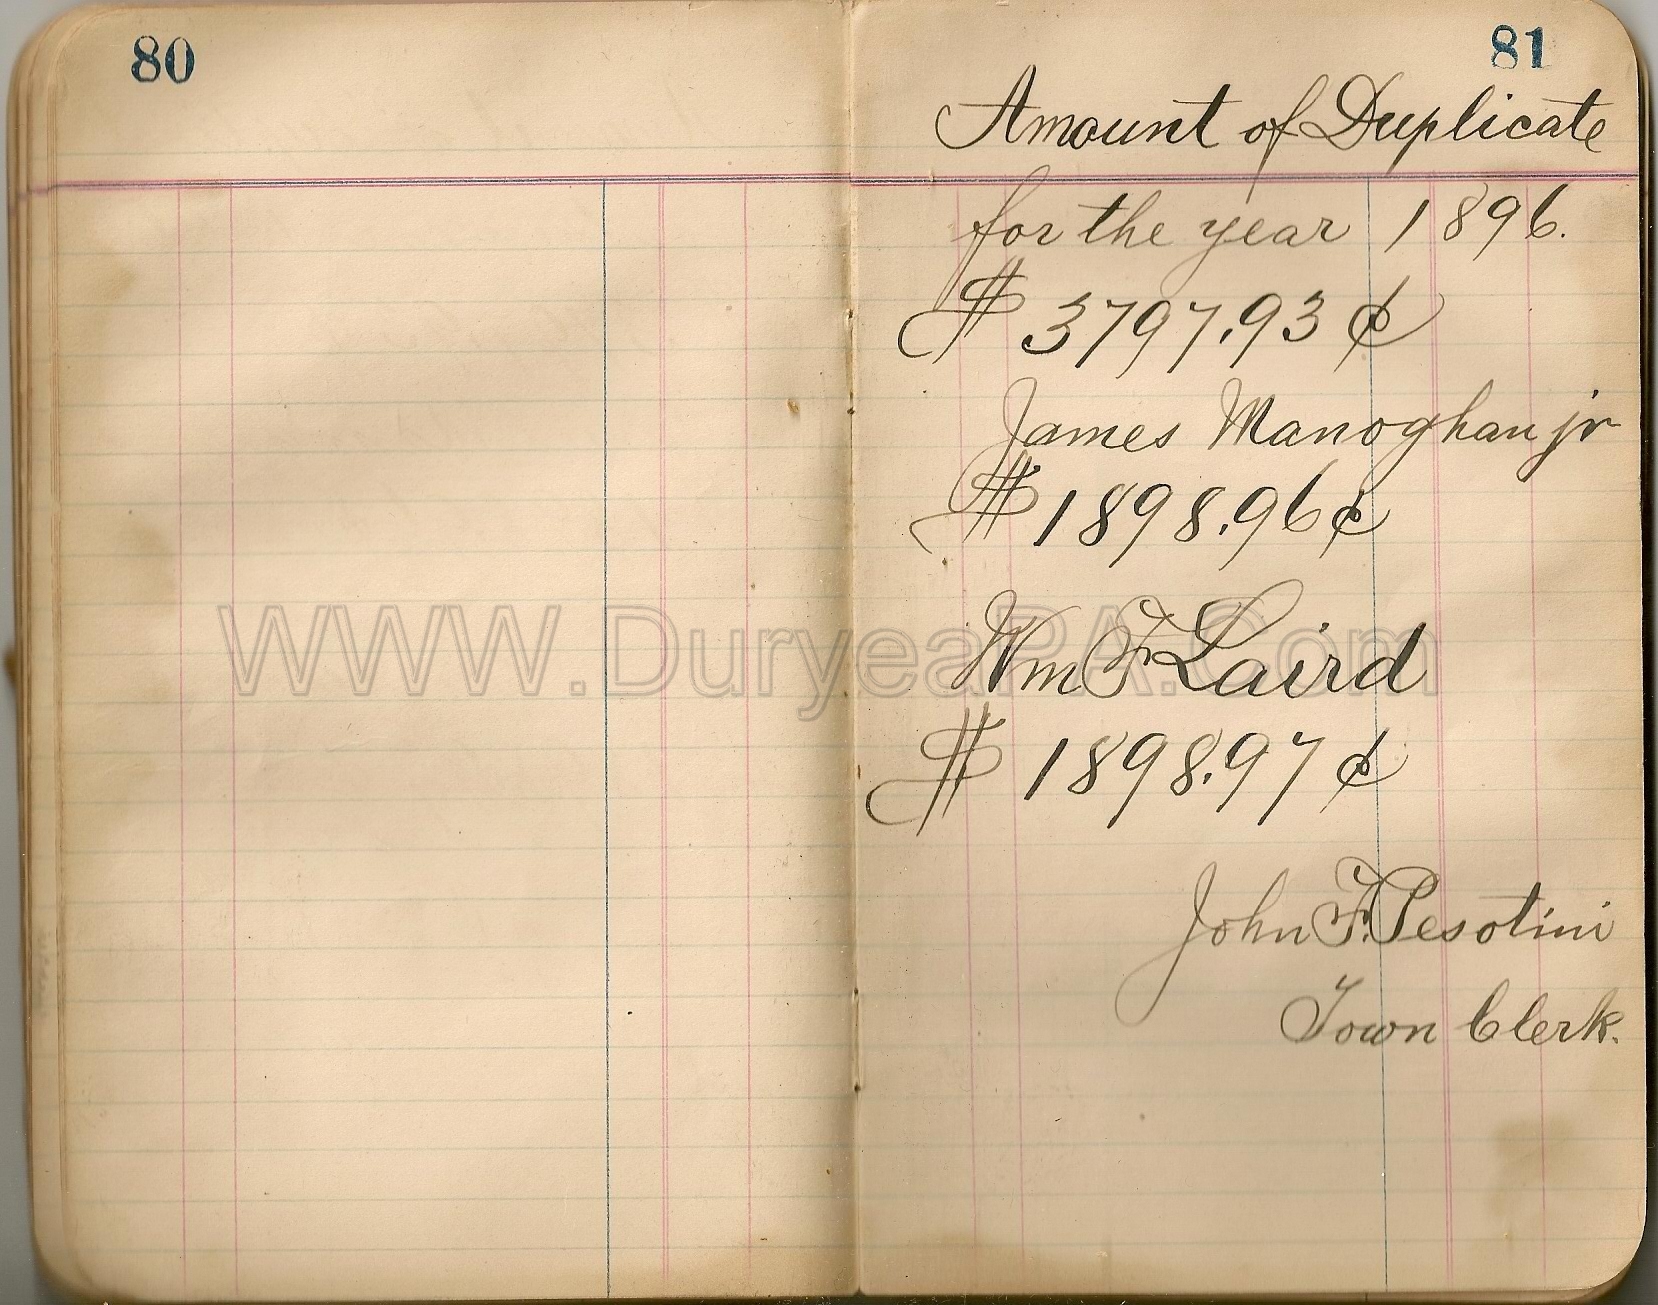 80
81
Amount of Duplicate
for the year 1896.
$ 3797.93 ¢
James Manoghan jr
$ 1898.96 ¢
WWW.DuryeaPA.Com
Wm F Laird
$ 1898.97 ¢
John F. Pesotini
Town Clerk.